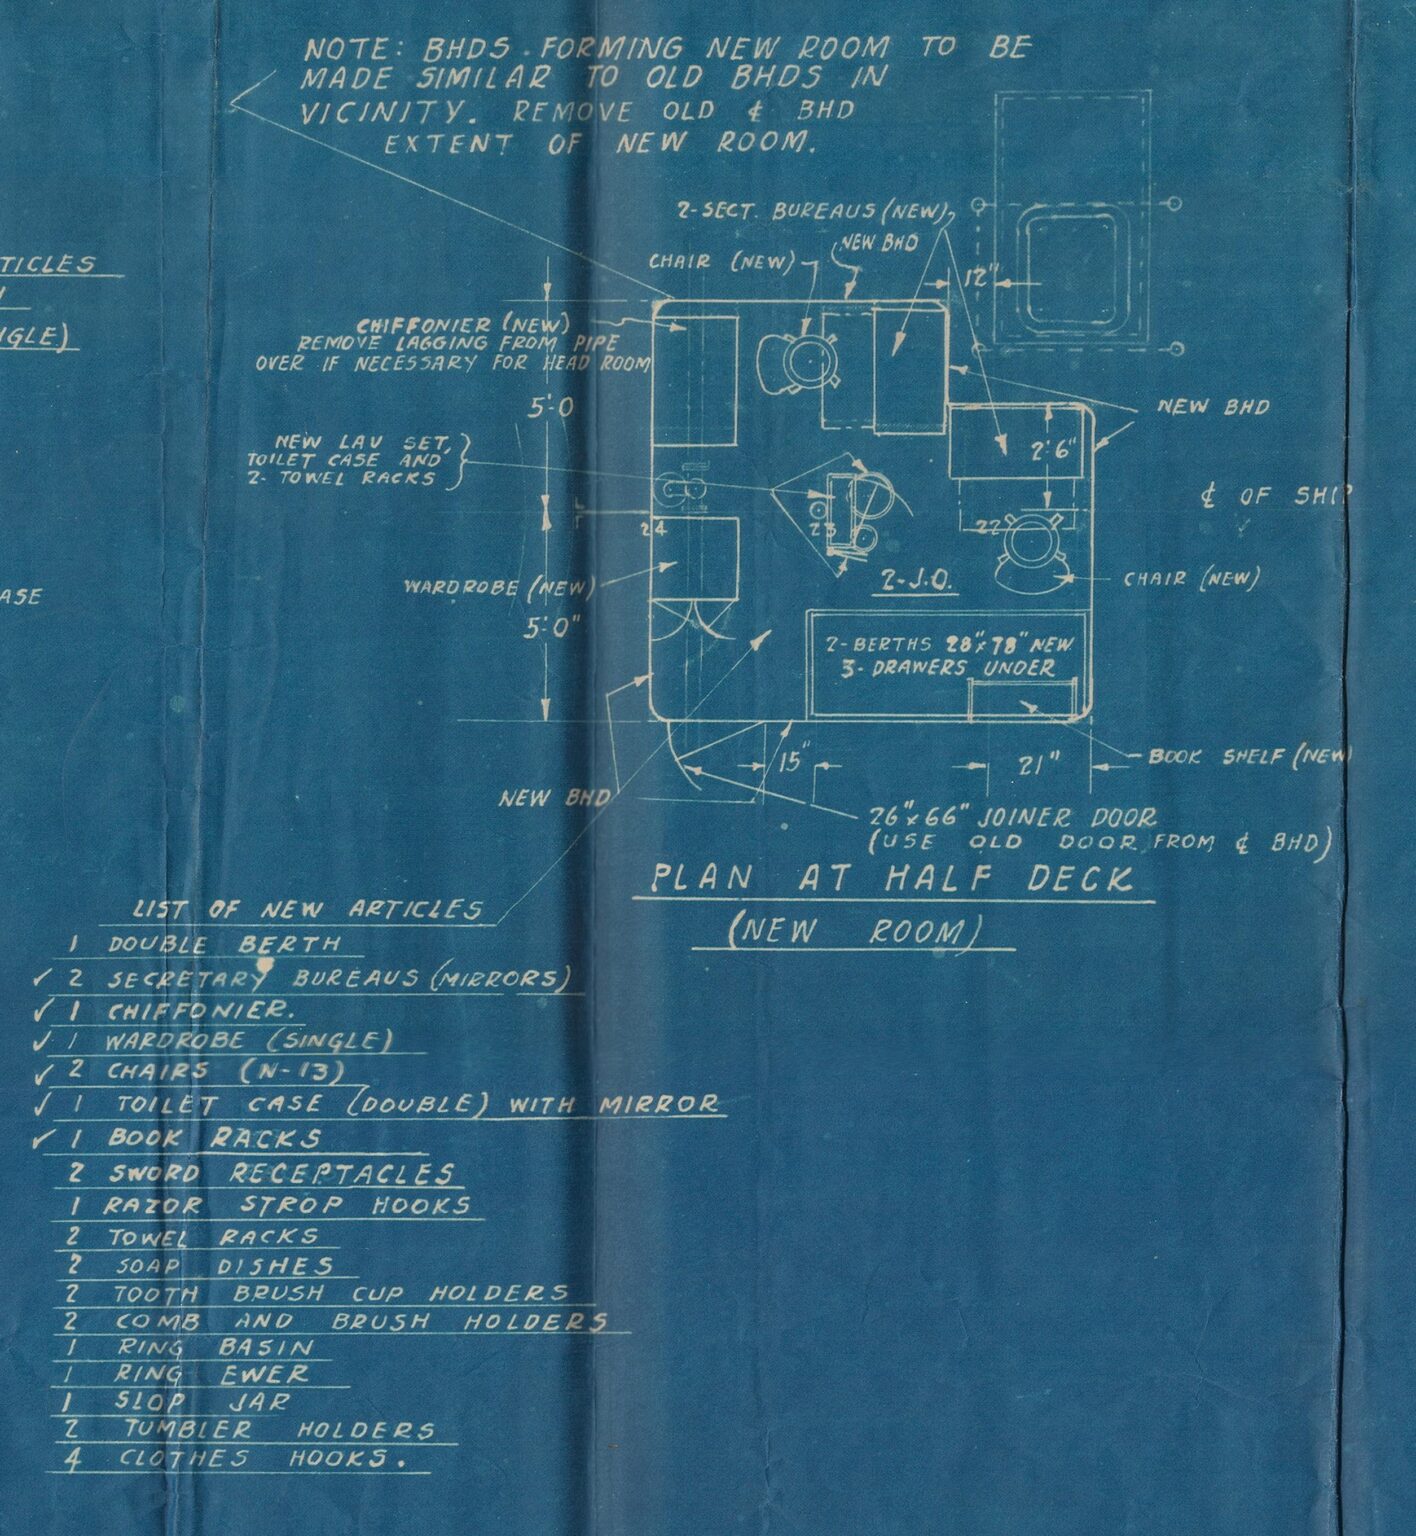 NOTE: BHDS. FORMING NEW ROOM TO BE
MADE SIMILAR TO OLD BHDS IN
VICINITY. REMOVE OLD ℄ BHD
EXTENT OF NEW ROOM.
2-SECT. BUREAUS (NEW)
NEW BHD
CHAIR (NEW)
12"
TICLES
GLE)
CHIFFONIER (NEW)
REMOVE LAGGING FROM PIPE
OVER IF NECESSARY FOR HEAD ROOM
5'-0
NEW BHD
NEW LAV SET,
TOILET CASE AND
2- TOWEL RACKS
2'6"
℄ OF SHIP
24
23
22
2-J.O.
WARDROBE (NEW)
CHAIR (NEW)
ASE
5'-0"
2-BERTHS 28"x78" NEW
3- DRAWERS UNDER
15"
21"
BOOK SHELF (NEW)
NEW BHD
26"x66" JOINER DOOR
(USE OLD DOOR FROM ℄ BHD)
PLAN AT HALF DECK
(NEW ROOM)
LIST OF NEW ARTICLES
1 DOUBLE BERTH
✓ 2 SECRETARY BUREAUS (MIRRORS)
✓ 1 CHIFFONIER.
✓ 1 WARDROBE (SINGLE)
✓ 2 CHAIRS (N-13)
✓ 1 TOILET CASE (DOUBLE) WITH MIRROR
✓ 1 BOOK RACKS
2 SWORD RECEPTACLES
1 RAZOR STROP HOOKS
2 TOWEL RACKS
2 SOAP DISHES
2 TOOTH BRUSH CUP HOLDERS
2 COMB AND BRUSH HOLDERS
1 RING BASIN
1 RING EWER
1 SLOP JAR
2 TUMBLER HOLDERS
4 CLOTHES HOOKS.